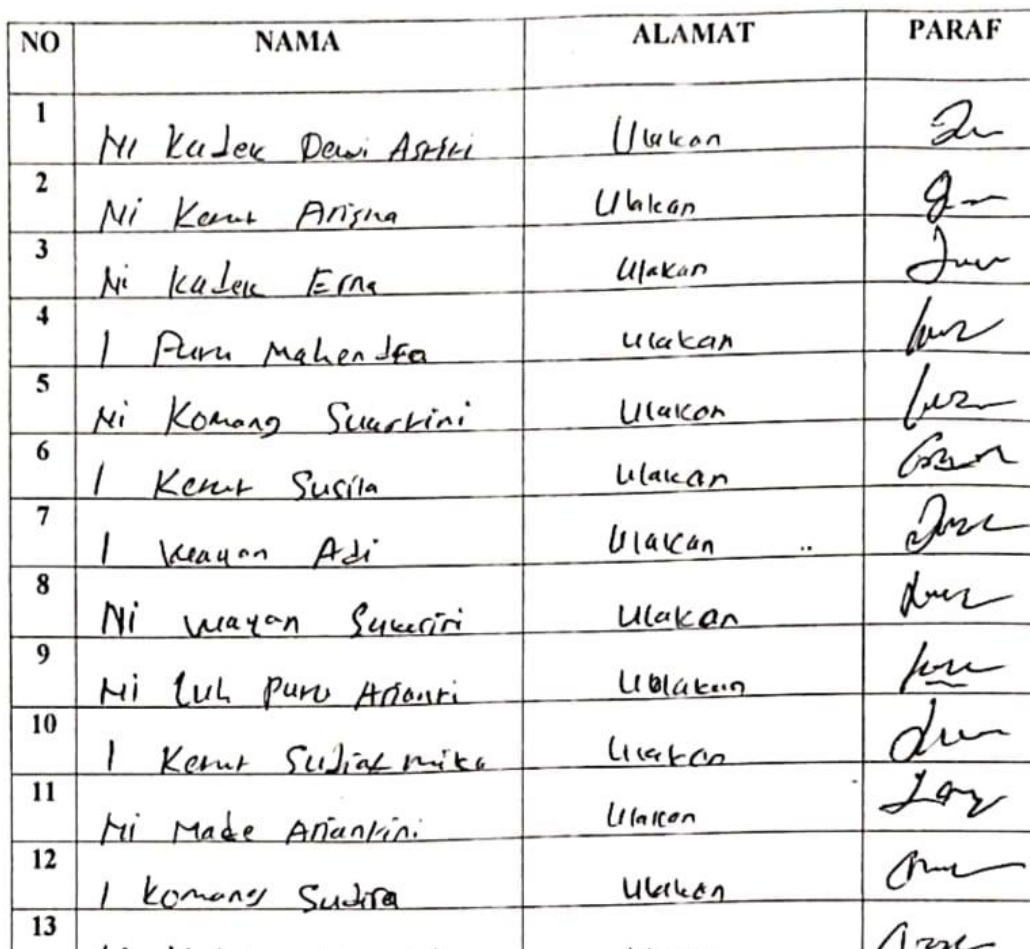 NO NAMA ALAMAT PARAF
1 Ni Kadek Dewi Astiti Ulakan
2 Ni Ketut Arisna Ulakan
3 Ni Kadek Erna Ulakan
4 I Putu Mahendra Ulakan
5 Ni Komang Suartini Ulakan
6 I Ketut Susila Ulakan
7 I Wayan Adi Ulakan
8 Ni Wayan Sukerini Ulakan
9 Ni Luh Putu Arianti Ulakan
10 I Ketut Sudiatmika Ulakan
11 Ni Made Ariantini Ulakan
12 I Komang Sudira Ulakan
13